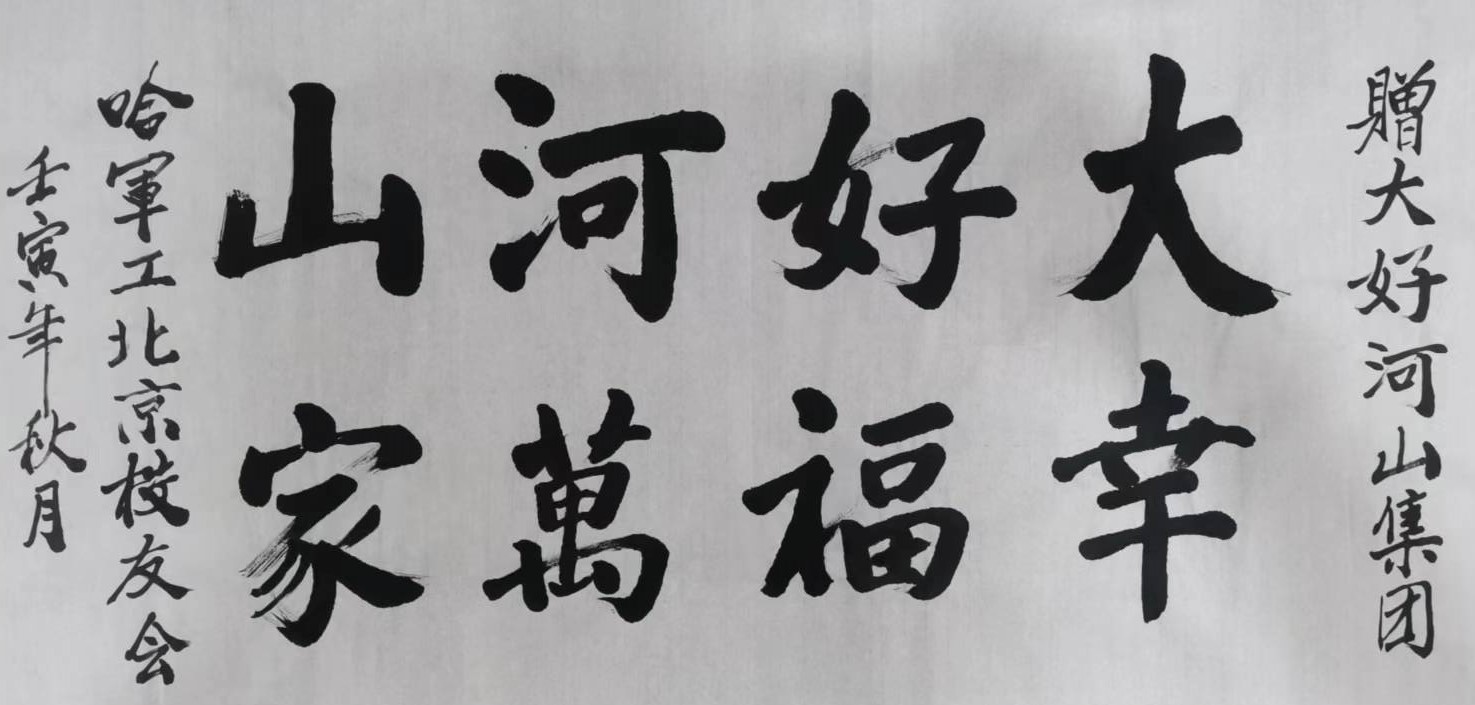 贈大好河山集团
大好河山
幸福萬家
哈軍工北京校友会
壬寅年秋月